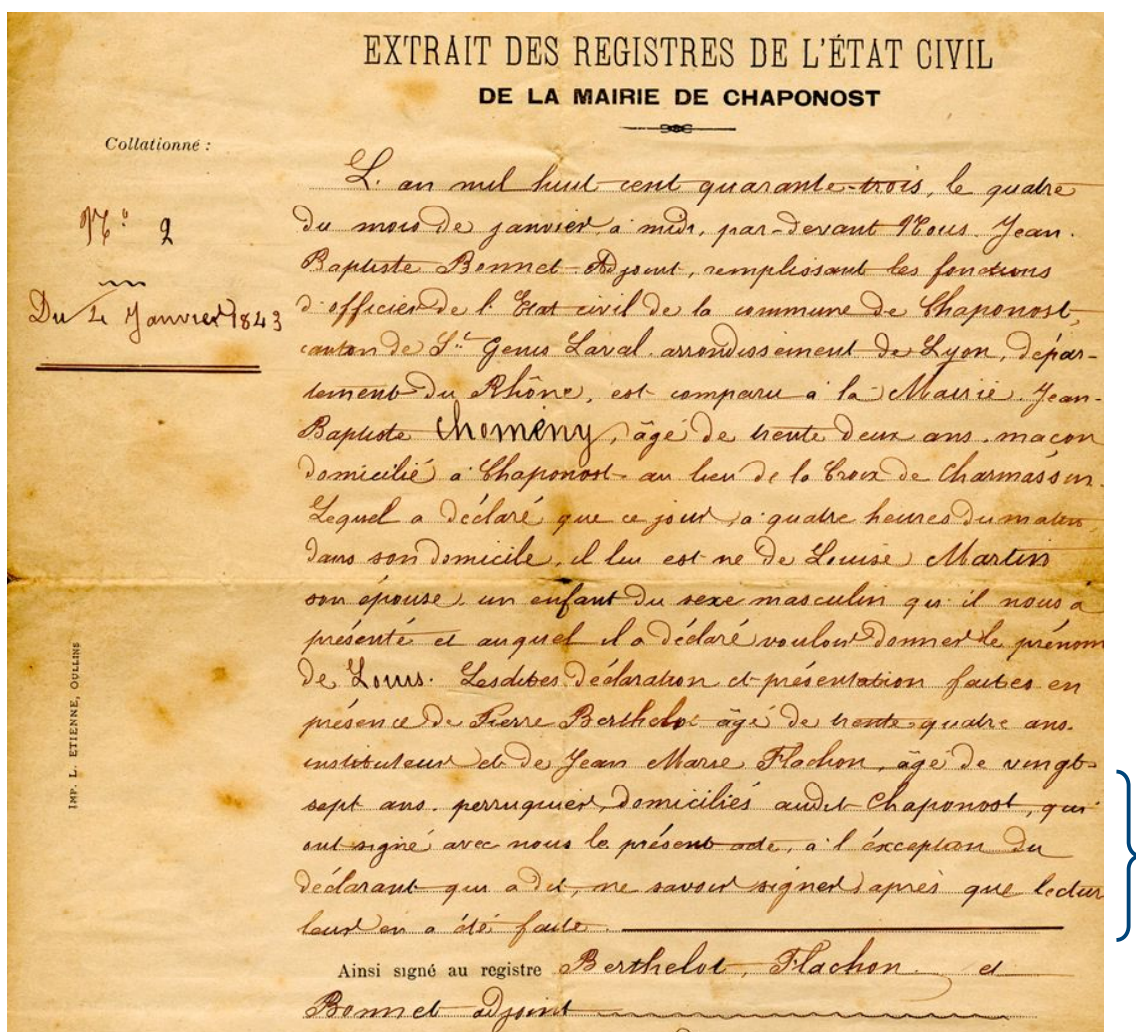 EXTRAIT DES REGISTRES DE L'ÉTAT CIVIL
DE LA MAIRIE DE CHAPONOST
Collationné :
N.º 2
Du 4 Janvier 1843
L'an mil huit cent quarante-trois, le quatre
du mois de janvier, à midi, par-devant Nous. Jean-
Baptiste Bonnet Adjoint, remplissant les fonctions
d'officier de l'Etat civil de la commune de Chaponost,
canton de St Genis Laval. arrondissement de Lyon, dépar-
tement du Rhône, est comparu à la Mairie. Jean-
Baptiste Chomény, âgé de trente deux ans. maçon
domicilié à Chaponost au lieu de la Croix de Charmasson.
Lequel a déclaré que ce jour, à quatre heures du matin,
dans son domicile, il lui est né de Louise Martin
son épouse, un enfant du sexe masculin qu'il nous a
présenté et auquel il a déclaré vouloir donner le prénom
de Louis. Lesdites déclaration et présentation faites en
présence de Pierre Berthelot âgé de trente-quatre ans.
instituteur et de Jean Marie Flachon, âgé de vingt-
sept ans. perruquier, domiciliés audit Chaponost, qui
ont signé avec nous le présent acte, à l'éxception du
déclarant qui a dit, ne savoir signer, après que lectur
leur en a été faite.
Ainsi signé au registre Berthelot, Flachon et
Bonnet adjoint
IMP. L. ETIENNE, OULLINS